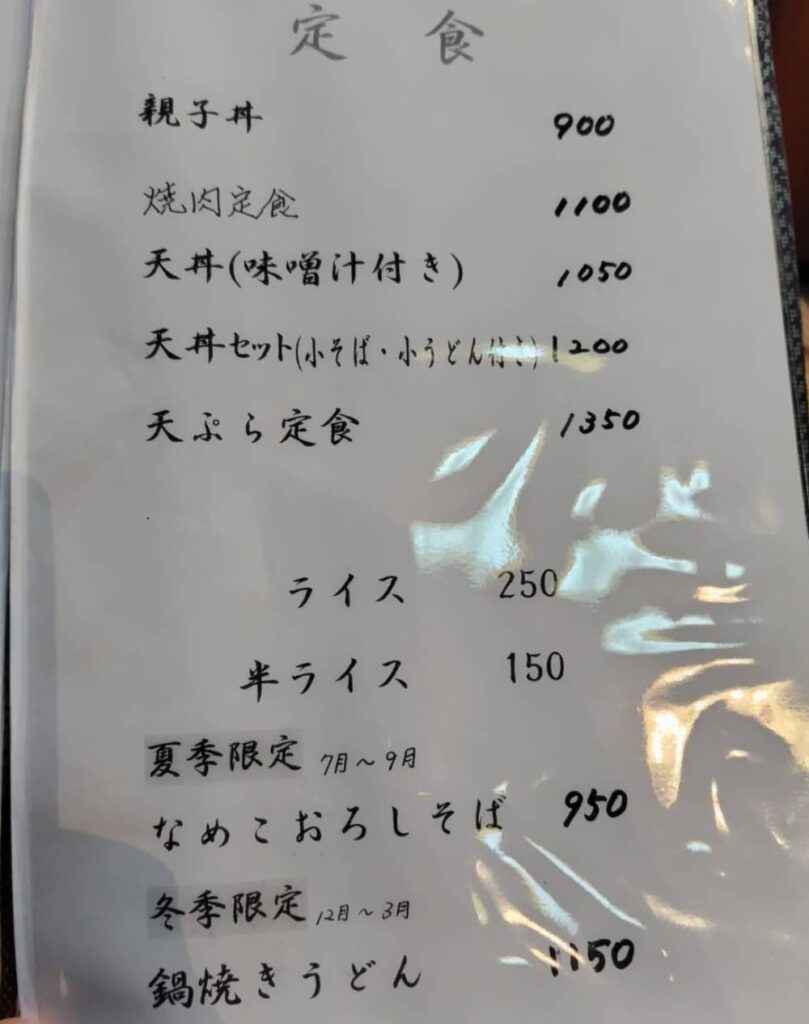 定食
親子丼 900
焼肉定食 1100
天丼(味噌汁付き) 1050
天丼セット(小そば・小うどん付き) 1200
天ぷら定食 1350
ライス 250
半ライス 150
夏季限定 7月～9月
なめこおろしそば 950
冬季限定 12月～3月
鍋焼きうどん 1150